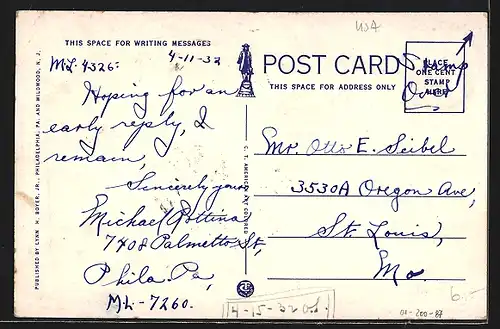 USA
THIS SPACE FOR WRITING MESSAGES
4-11-32
ML. 4326:
Hoping for an
early reply, I
remain,
Sincerely yours
Michael
7408 Palmetto St,
Phila. Pa,
ML-7260.
POST CARD
THIS SPACE FOR ADDRESS ONLY
PLACE
ONE CENT
STAMP
HERE
Stamp
Over
Mr. Otto E. Seibel
3530A Oregon Ave,
St. Louis,
Mo.
4-15-32
6.-
01-200-87
PUBLISHED BY LYNN H. BOYER, JR., PHILADELPHIA, PA. AND WILDWOOD, N. J.
C. T. AMERICAN ART COLORED